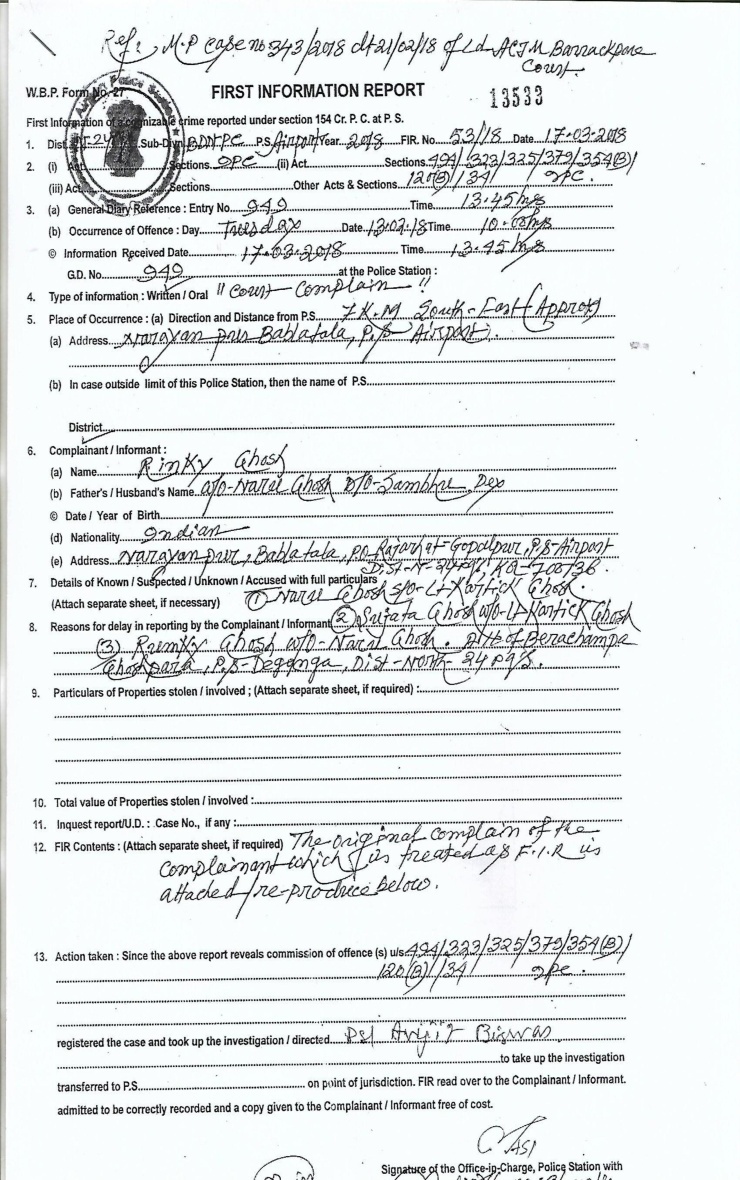 Ref: M.P case no 343/2018 dt 21/02/18 of Ld. ACJM Barrackpore
Court.
W.B.P. Form No. 27
FIRST INFORMATION REPORT
13533
First Information of a cognizable crime reported under section 154 Cr. P. C. at P. S.
1. Dist. Sub-Divn BDNPC P.S. Airport Year 2018 FIR. No 53/18 Date 17.03.2018
2. (i) Act Sections IPC (ii) Act Sections 494/323/325/379/354(B)/
(iii) Act Sections Other Acts & Sections 120(B)/34 IPC.
3. (a) General Diary Reference : Entry No. 949 Time 13.45 hrs
(b) Occurrence of Offence : Day Tuesday Date 13.02.18 Time
© Information Received Date 17.03.2018 Time 13.45 hrs
G.D. No. 949 at the Police Station :
4. Type of information : Written / Oral "Court Complain"
5. Place of Occurrence : (a) Direction and Distance from P.S. 7 K.M South-East (Approx)
(a) Address Narayanpur Bablatala, P.S Airport.
(b) In case outside limit of this Police Station, then the name of P.S.
District
6. Complainant / Informant :
(a) Name Rinky Ghosh
(b) Father's / Husband's Name w/o-Narü Ghosh D/o-Sambhu Dey
© Date / Year of Birth
(d) Nationality Indian
(e) Address Narayanpur, Bablatala, P.O-Rajarhat-Gopalpur, P.S-Airport
Dist-N-24 Pgs, Kol-700136
7. Details of Known / Suspected / Unknown / Accused with full particulars
(Attach separate sheet, if necessary) (1) Narü Ghosh s/o-Lt Kartick Ghosh
8. Reasons for delay in reporting by the Complainant / Informant (2) Sujata Ghosh w/o-Lt Kartick Ghosh
(3) Rumky Ghosh w/o-Narü Ghosh. all of Berachampa
Ghoshpara, P.S-Deganga, Dist-North-24 Pgs.
9. Particulars of Properties stolen / involved ; (Attach separate sheet, if required) :
10. Total value of Properties stolen / involved :
11. Inquest report/U.D. : Case No., if any :
12. FIR Contents : (Attach separate sheet, if required) The original complain of the
complainant which is treated as F.I.R is
attached/re-produce below.
13. Action taken : Since the above report reveals commission of offence (s) u/s 494/323/325/379/354(B)/
120(B)/34 IPC.
registered the case and took up the investigation / directed PSI Avijit Biswas
to take up the investigation
transferred to P.S. on point of jurisdiction. FIR read over to the Complainant / Informant.
admitted to be correctly recorded and a copy given to the Complainant / Informant free of cost.
ASI
Signature of the Office-in-Charge, Police Station with